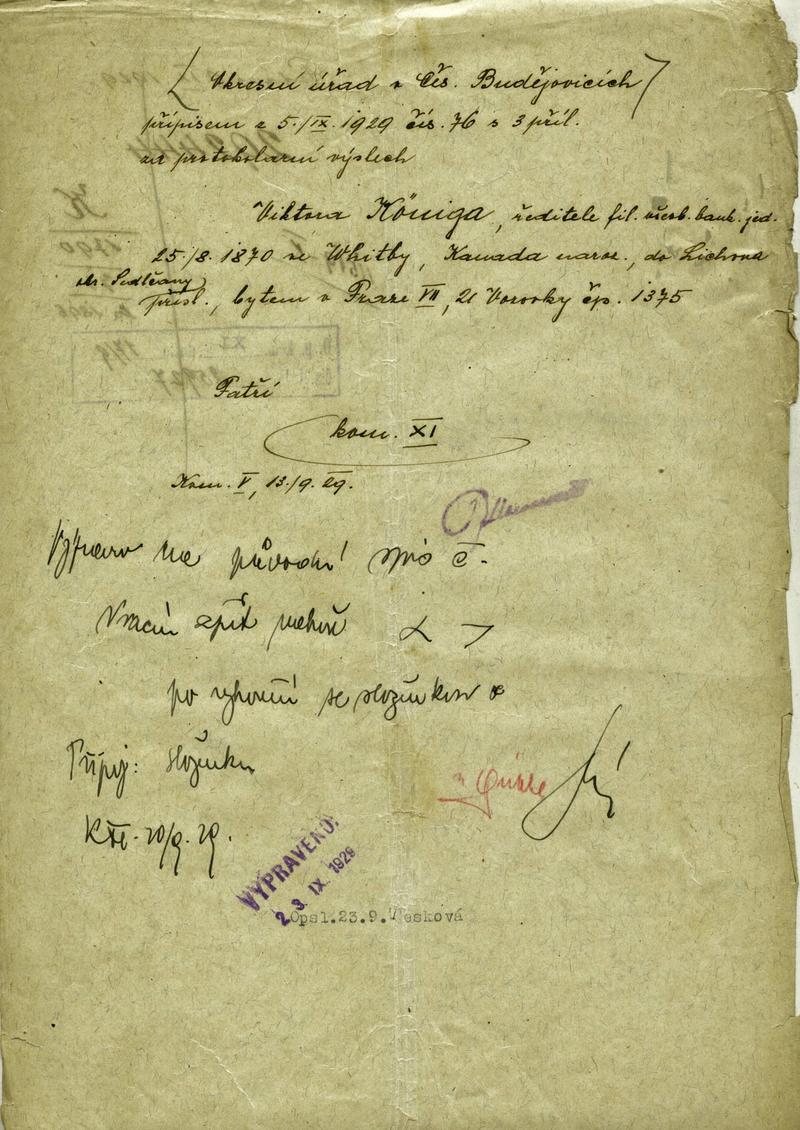 Okresní úřad v Čes. Budějovicích
přípisem z 5./IX. 1929 čís. 76 s 3 příl.
za protokolární výslech
Viktora Königa, ředitele fil. všeob. bank. jed.
25./8. 1870 ve Whitby, Kanada naroz., do Líchova
okr. Sedlčany
přísl., bytem v Praze VII, U Vorovky čp. 1375
Patří
kom. XI
Kom. V, 13./9. 29.
Vyprav na původní spis
Vrací zpět
po vyhovění se složinkou
Připoj: složinku
20/9. 29.
VYPRAVENO:
23. IX. 1929
Opsl.23.9.Vesková